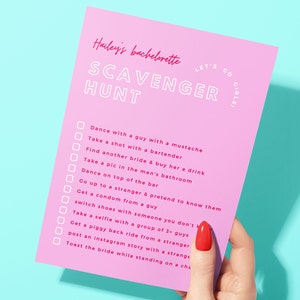 Hailey's bachelorette
LET'S GO GIRLS!
SCAVENGER
HUNT
Dance with a guy with a mustache
Take a shot with a bartender
Find another bride & buy her a drink
Take a pic in the men's bathroom
Dance on top of the bar
Go up to a stranger & pretend to know them
Get a condom from a guy
switch shoes with someone you don't
Take a selfie with a group of 3+ guys
Get a piggy back ride from a stranger
post an instagram story with a stranger
Toast the bride while standing on a